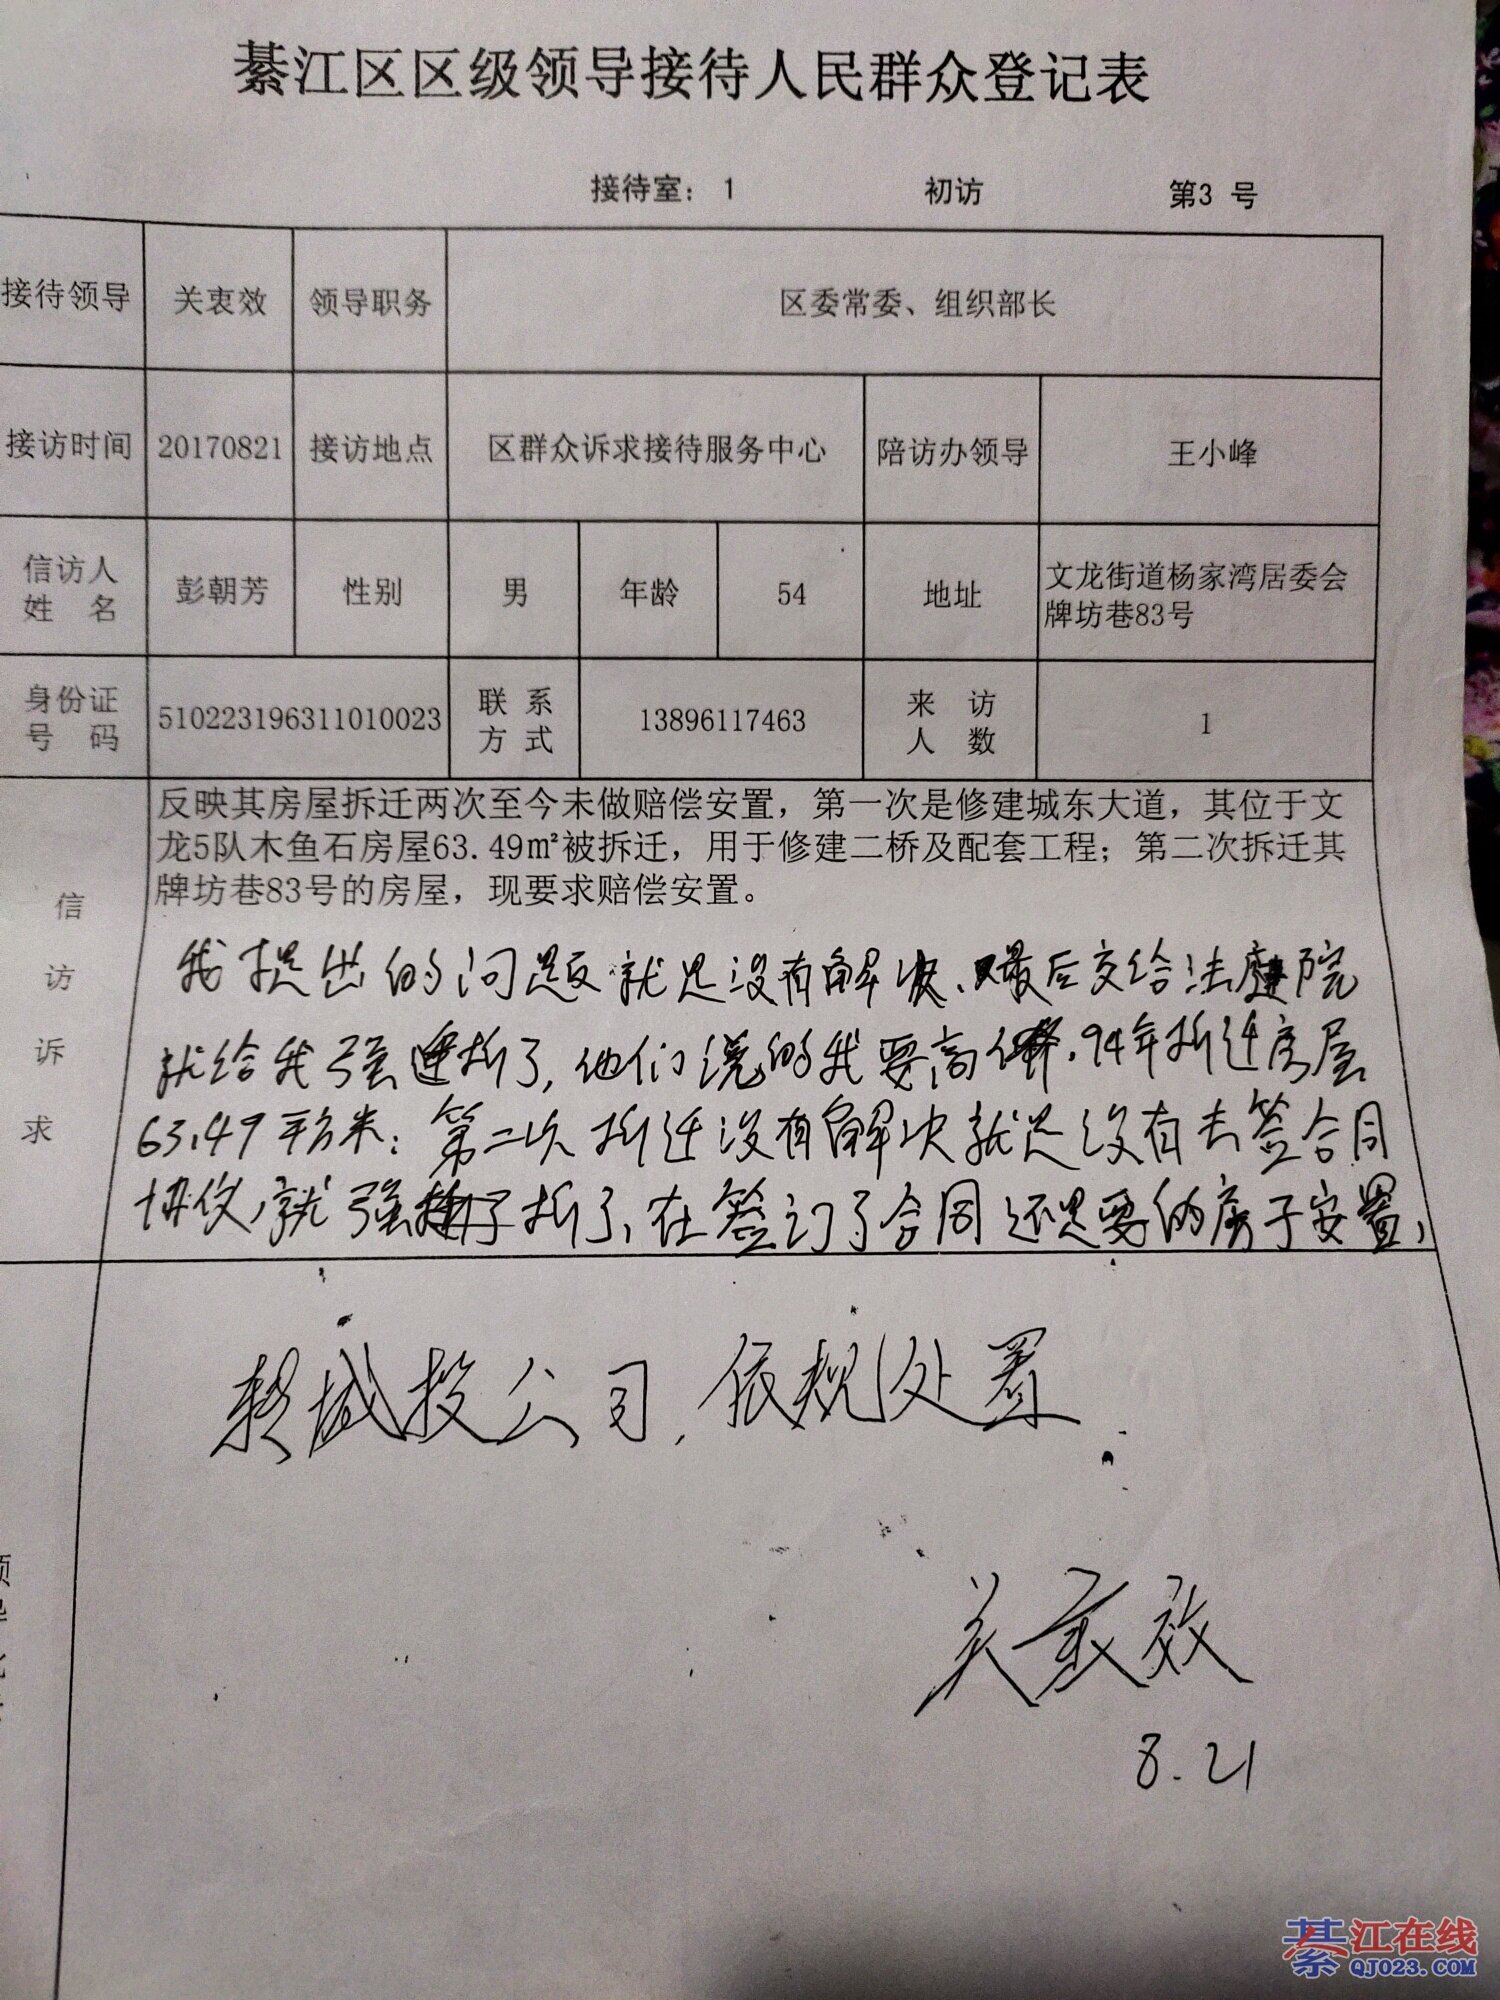 綦江区区级领导接待人民群众登记表
接待室: 1 初访 第3 号
接待领导 关衷效 领导职务 区委常委、组织部长
接访时间 20170821 接访地点 区群众诉求接待服务中心 陪访办领导 王小峰
信访人姓 名 彭朝芳 性别 男 年龄 54 地址 文龙街道杨家湾居委会
牌坊巷83号
身份证号 码 510223196311010023 联 系方 式 13896117463 来 访人 数 1
反映其房屋拆迁两次至今未做赔偿安置，第一次是修建城东大道，其位于文
龙5队木鱼石房屋63.49㎡被拆迁，用于修建二桥及配套工程；第二次拆迁其
牌坊巷83号的房屋，现要求赔偿安置。
信
访
诉
求
我提出的问题就是没有解决、最后交给法院
就给我强拆了,他们说的我要高价.94年拆迁房屋
63.49平方米:第二次拆迁没有解决就是没有去签合同
协议,就强拆了,在签订了合同还是要的房子安置,
转城投公司,依规处置.
关衷效
8.21
綦江在线
QJ023.COM